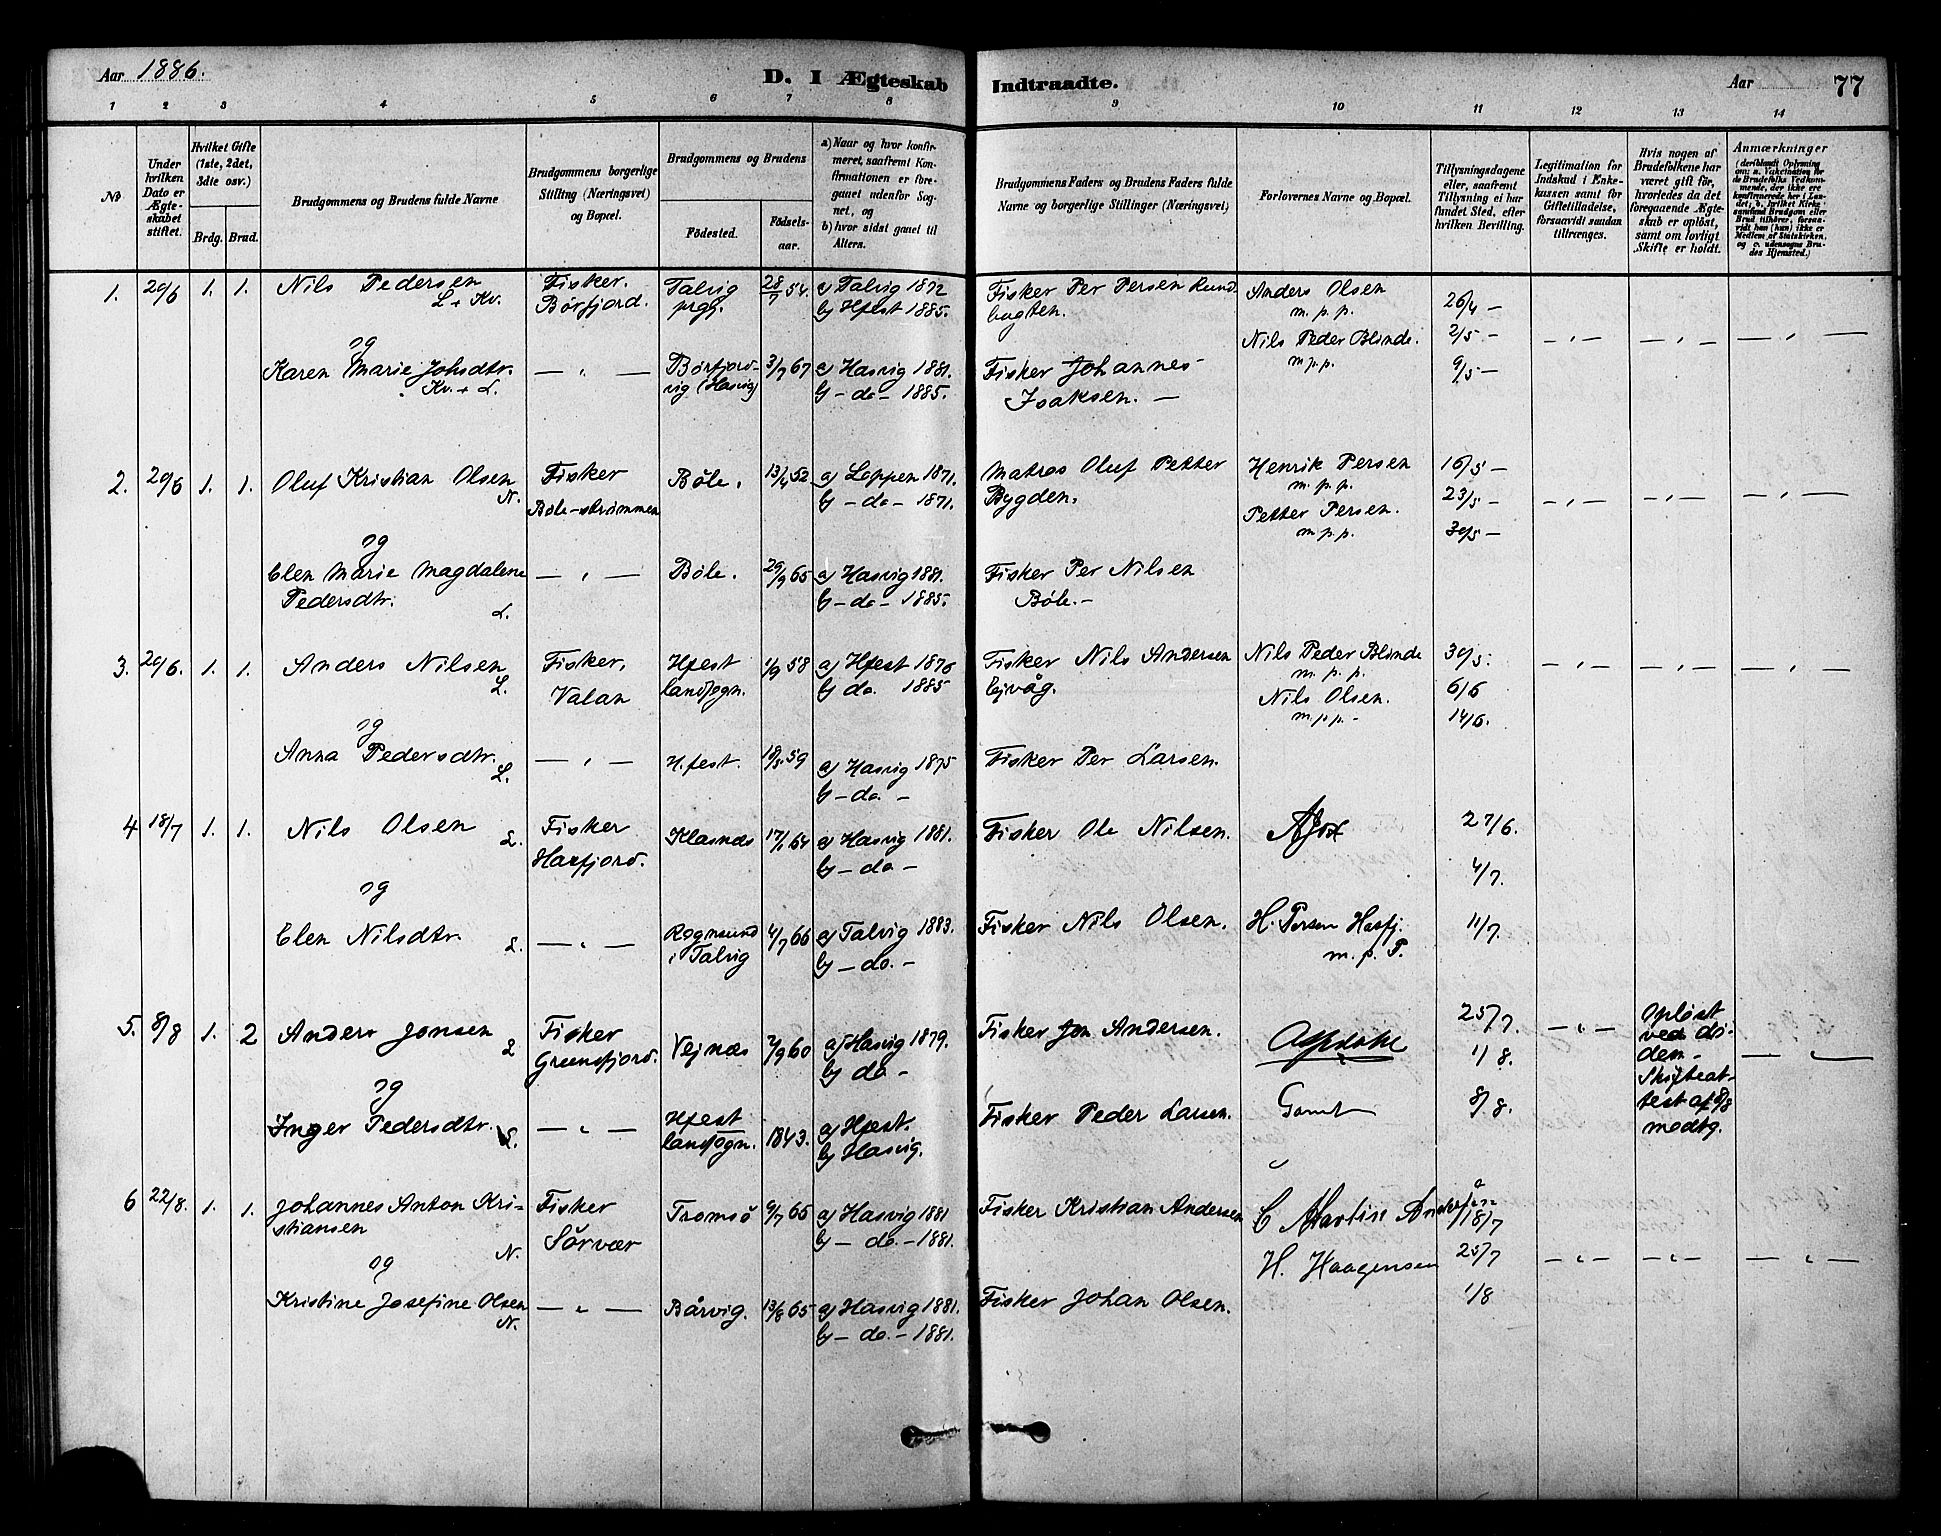 Aar 1886.
D. I Ægteskab Indtraadte.
Aar 77
1 2 3 4 5 6 7 8 9 10 11 12 13 14
No
Under hvilken Dato er Ægteskabet stiftet.
Hvilket Gifte (1ste, 2det, 3die osv.)
Brdg. Brud.
Brudgommens og Brudens fulde Navne
Brudgommens borgerlige Stilling (Næringsvei) og Bopæl.
Brudgommens og Brudens
Fødested. Fødselsaar.
a) Naar og hvor konfirmeret, saafremt Konfirmationen er foregaaet udenfor Sognet, og
b) hvor sidst gaaet til Alters.
Brudgommens Faders og Brudens Faders fulde Navne og borgerlige Stillinger (Næringsvei)
Forlovernes Navne og Bopæl.
Tillysningsdagene eller, saafremt Tillysning ei har fundet Sted, efter hvilken Bevilling.
Legitimation for Indskud i Enkekassen samt for Giftetilladelse, forsaavidt saadan tiltrænges.
Hvis nogen af Brudefolkene har været gift før, hvorledes da det foregaaende Ægteskab er opløst, samt om lovligt Skifte er holdt.
Anmærkninger
1. 20/6 1. 1. Nils Pedersen L + Kv. Fisker. Børfjord. Talvig prgj. 28/7 54. a) Talvig 1872 b) Hfest 1885. Fisker Per Persen Rundbugten. Anders Olsen m.p.p. 26/4 –
Nils Peder Blinde. m.p.p. 2/5 –
og
Karen Marie Johsdtr. Kv. + L. — " — Børfjordvig (Hasvig) 3/7 67 a) Hasvig 1881. b) – do – 1885. Fisker Johannes Isaksen. — 9/5 –
2. 20/6 1. 1. Oluf Kristian Olsen N. Fisker Bøle-strømmen Bøle. 13/4 52 a) Loppen 1871. b) – do – 1871. Matros Oluf Petter Bygden. Henrik Persen m.p.p. 16/5 –
Petter Persen. m.p.p. 23/5 –
30/5 –
og
Elen Marie Magdalene Pedersdtr. L. — " — Bøle. 29/9 65 a) Hasvig 1881. b) – do – 1885. Fisker Per Nilsen Bøle. –
3. 20/6. 1. 1. Anders Nilsen L. Fisker, Valan Hfest landsogn. 1/9 58 a) Hfest 1876 b) do. 1885 Fisker Nils Andersen Ejvåg. Nils Peder Blinde m.p.p. 30/5.
Nils Olsen. m.p.p. – 6/6
14/6.
og
Anna Pedersdtr. L. — " — H.fest. 18/5 59 a) Hasvig 1875 b) – do. – Fisker Per Larsen.
4 18/7 1. 1. Nils Olsen L. Fisker Hasfjord. Klasnæs 17/1 64 a) Hasvig 1881. b) – do – Fisker Ole Nilsen. 27/6.
4/7.
og
Elen Nilsdtr. L. — " — Rognsund i Talvig 4/7 66 a) Talvig 1883. b) – do. – Fisker Nils Olsen. H. Persen Hasfj. m.p.P. 11/7.
5. 8/8 1. 2 Anders Jonsen L Fisker Grunsfjord. Vejnæs 2/9 60 a) Hasvig 1879. b) do – Fisker Jon Andersen. 25/7.
1/8. — " — Opløst ved døden – Skifteattest af 8/8 modtg.
og
Inger Pedersdtr. L. — " — Hfest landsogn. 1843. a) Hfest. b) Hasvig. Fisker Peder Larsen. 8/8.
6 22/8. 1. 1. Johannes Anton Kristiansen N. Fisker Sørvær Tromsø 9/7 65 a) Hasvig 1881 b) – do. – 1881. Fisker Kristian Andersen C Martin Andersen 18/7
H. Haagensen 25/7
og
Kristine Josefine Olsen N. — " — Bårvig. 13/6 65 a) Hasvig 1881. b) – do. – 1881. Fisker Johan Olsen. 1/8